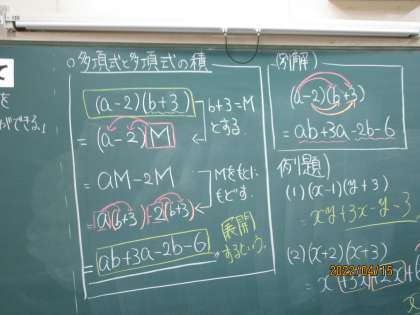 て
を
ができる。
○多項式と多項式の積
(a-2)(b+3)
b+3=M
とする。
=(a-2)M
=aM-2M
Mをもとに
もどす。
=a(b+3)-2(b+3)
=ab+3a-2b-6
展開
するという。
例解
(a-2)(b+3)
=ab+3a-2b-6
例題
(1)(x-1)(y+3)
=xy+3x-y-3
(2)(x+2)(x+3)
2022/04/15